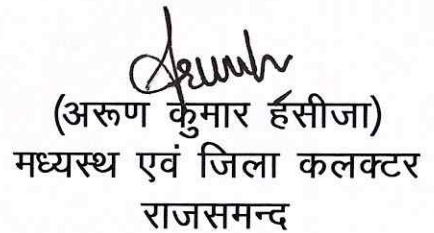 (अरूण कुमार हॅसीजा)
मध्यस्थ एवं जिला कलक्टर
राजसमन्द